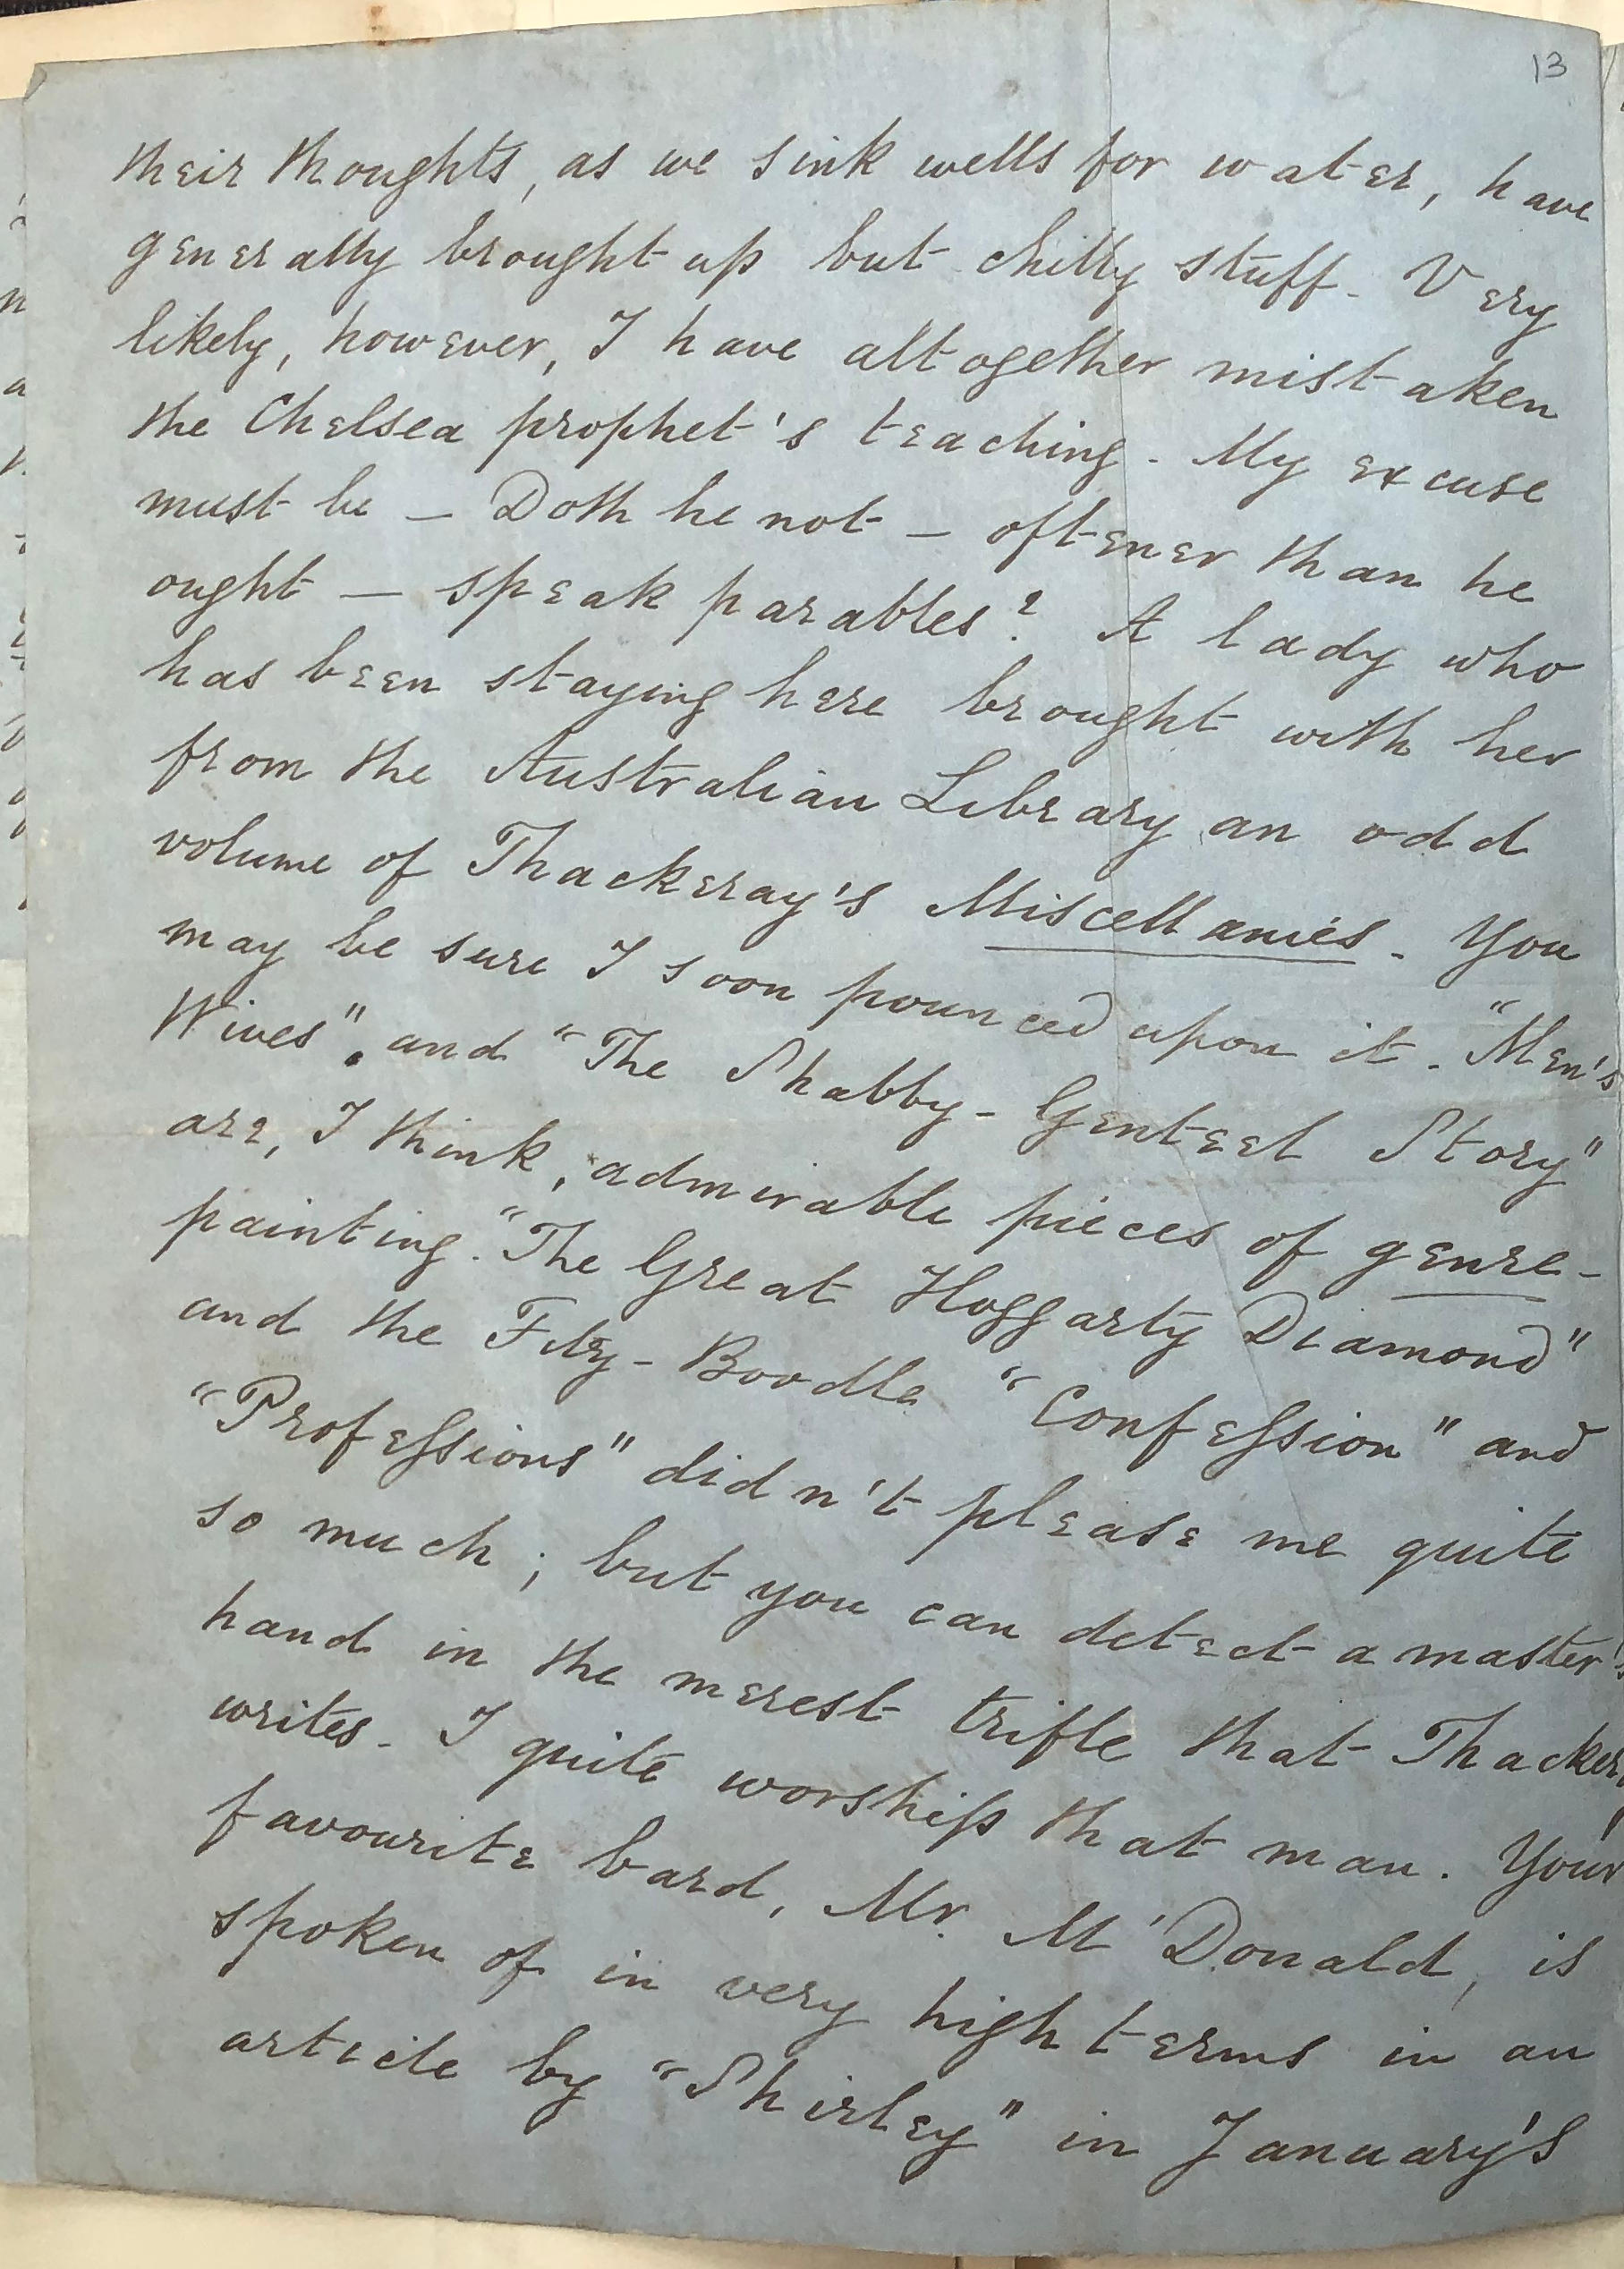 13
their thoughts, as we sink wells for water, have
generally brought up but chilly stuff. Very
likely, however, I have altogether mistaken
the Chelsea prophet's teaching. My excuse
must be — Doth he not — oftener than he
ought — speak parables? A lady who
has been staying here brought with her
from the Australian Library an odd
volume of Thackeray's Miscellanies. You
may be sure I soon pounced upon it. "Men's
Wives", and "The Shabby-Genteel Story"
are, I think, admirable pieces of genre-
painting. "The Great Hoggarty Diamond"
and the Fitz-Boodle "Confession" and
"Professions" didn't please me quite
so much; but you can detect a master's
hand in the merest trifle that Thacker
writes. I quite worship that man. Your
favourite bard, Mr. M'Donald, is
spoken of in very high terms in an
article by "Shirley" in January's